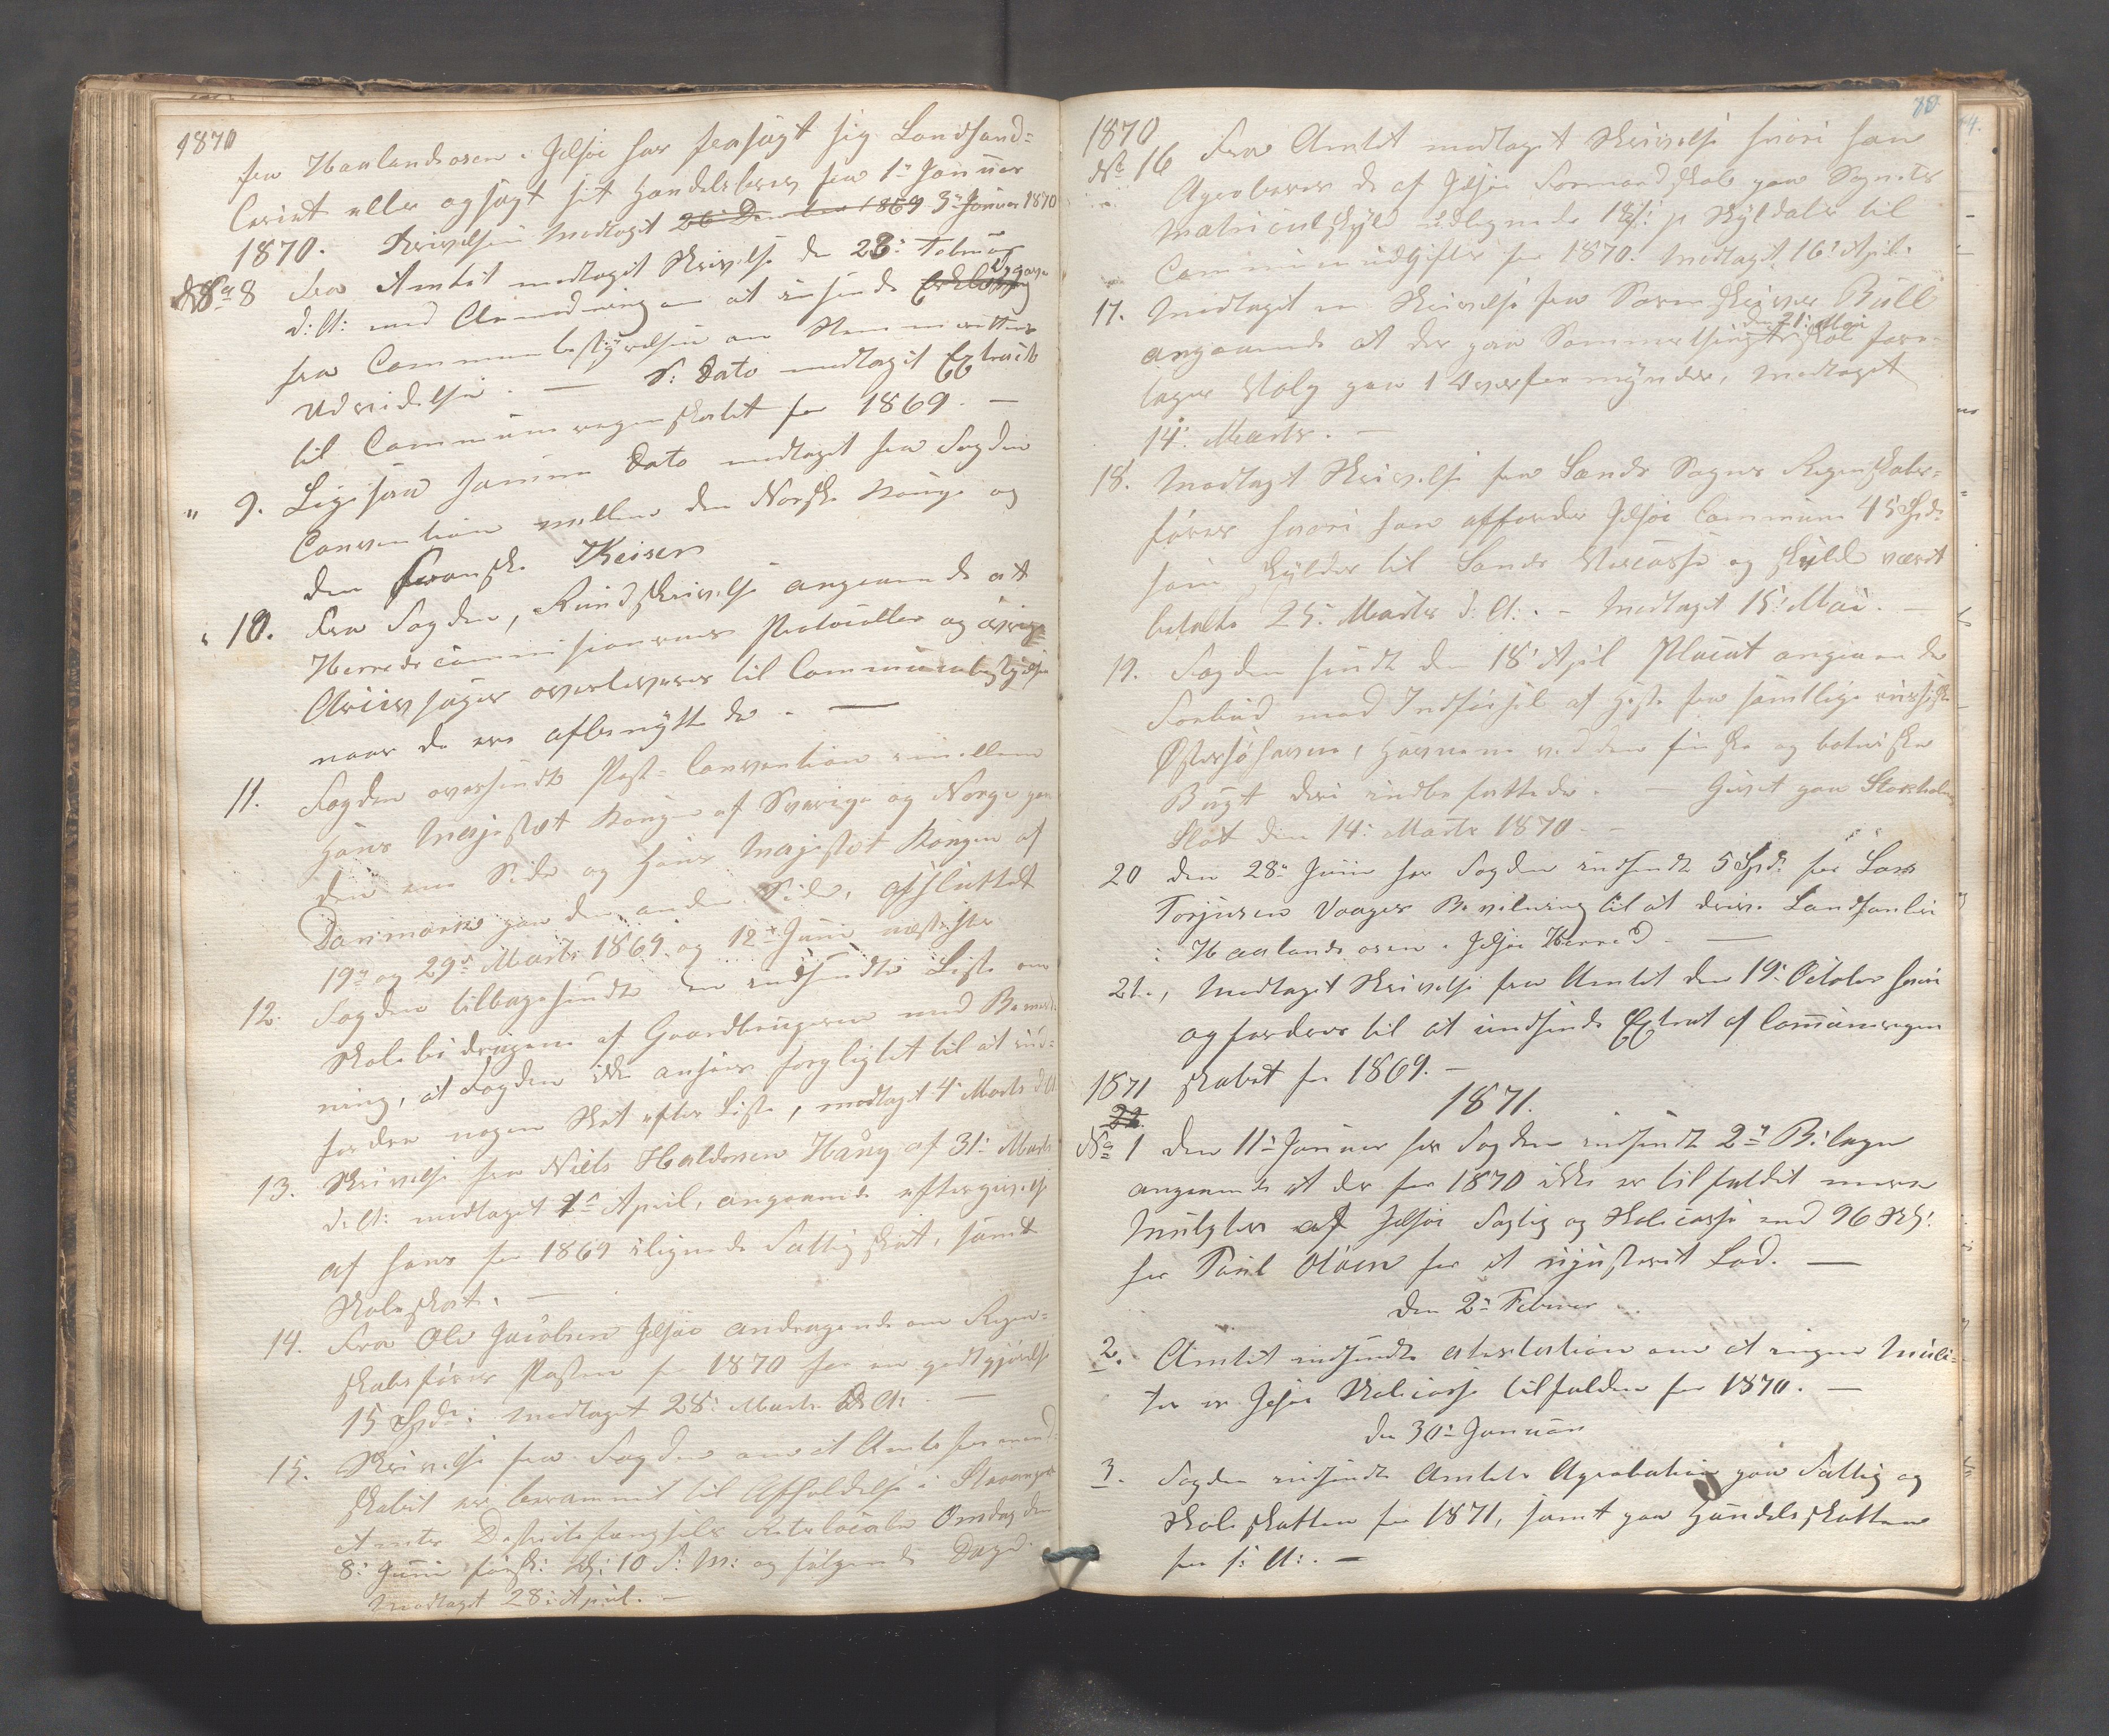 1870
fra Haalandsosen i Jelsøe har frasagt sig Landhand-
leriet eller opsagt sit Handelsbrev fra 1ste Januar
1870. Skrivelsen Modtaget 26 December 1869 3die Januar 1870
No 8 Fra Amtet modtaget Skrivelse den 28: Februar
d: A: med Anmodning om at insende Erklæring Opgave
fra Communebestyrelsen om Stemmerettens
Udvidelse. — S: Dato modtaget Extract
til Communeregnskabet for 1869. —
" 9. Ligesaa samme Dato modtaget fra Fogden
Convention mellem den Norske Konge og
den Franske Keiser
" 10. Fra Fogden, Rundskrivelse angaaende at
Herredscommissionernes Protocoller og øvrige
Arcivsager overleveres til Communebestyrelsen
naar de ere afbenyttede. —
11. Fogden oversendt Post-Convention imellem
Hans Majestæt Kongen af Sverige og Norge paa
den ene Side og Hans Majestæt Kongen af
Danmark paa den anden Side, afsluttet
19de og 29de Marts 1869. og 12te Juni næstefter
12. Fogden tilbagesendt den indsendte Liste om
Skolebidragene af Gaardbrugerne med Bemærk-
ning, at Fogden ikke ansees forpligtet til at ind-
fordre nogen Skat efter Liste, modtaget 4de Marts d: A:
13. Skrivelse fra Niels Haldorsen Haug af 31: Marts
d: A: modtaget 1ste April, angaaende eftergivelse
af hans for 1869 ilignede Fattigskat, samt
Skoleskat. —
14. Fra Ole Jacobsen Jelsøe andragende om Regn-
skabsfører Posten for 1870 for en godtgjørelse
15 Spd: modtaget 28: Marts d: A: —
15. Skrivelse fra Fogden om at Amtsformand-
skabet er berammet til Afholdelse i Stavanger
Amts Destriktsfængsels Retslocale Onsdag den
8: Juni førstk: Kl: 10 F: M: og følgende Dage.
Modtaget 28: April. —
70.
1870
No 16 Fra Amtet modtaget Skrivelse hvori han
Aproberer de af Jelsøe Formandskab paa Sognets
Matriculskyld udlignede 18 s: pr Skylddaler til
Communeudgifter for 1870. Modtaget 16: April.
17. Modtaget en Skrivelse fra Sorenskriver Bull
angaaende at der paa Sommerthinget den 21: Mai skal fore-
tages Valg paa 1 Overformynder, Modtaget
14: Marts. —
18. Modtaget Skrivelse fra Sands Sogns Regnskabs-
fører hvori han affordrer Jelsøe Commune 45 Spd:
som skyldes til Sands Veicasse og skulde været
betalte 25: Marts d: A: - Modtaget 15: Mai. —
19. Fogden sendt den 18: April Placat angaaende
Forbud mod Indførsel af Heste fra samtlige russiske
Østersøhavne, Havnene ved den finske og botniske
Bugt deri indbefattede. — Givet paa Stockholms
Slot den 14: Marts 1870. —
20 den 28: Juni har Fogden indsendt 5 Spd: for Lars
Torjusen Vaages Bevilning til at drive Landhandleri
i Haalandsosen i Jelsøe Herred. —
21., Modtaget Skrivelse fra Amtet den 19: October hvori
opfordres til at indsende Extract af Communeregn
1871 skabet for 1869. —
1871.
22.
No 1 Den 11te Januar har Fogden indsendt 2de Bilage
angaaende at der for 1870 ikke er tilfaldet mere
Mulgter af Jelsøe Fattig og Skolecasse end 96 Sk:
for Poul Olsen for et ujusteret Lod. —
den 2den Februar
2. Amtet indsendt Attestation om at ingen Mulc-
ter er Jelsøe Skolecasse tilfalden for 1870. —
den 30te Januar
3. Fogden indsendt Amtets Aprobation paa Fattig og
Skoleskatten for 1871, samt paa Handelsskatten
for s: A: —